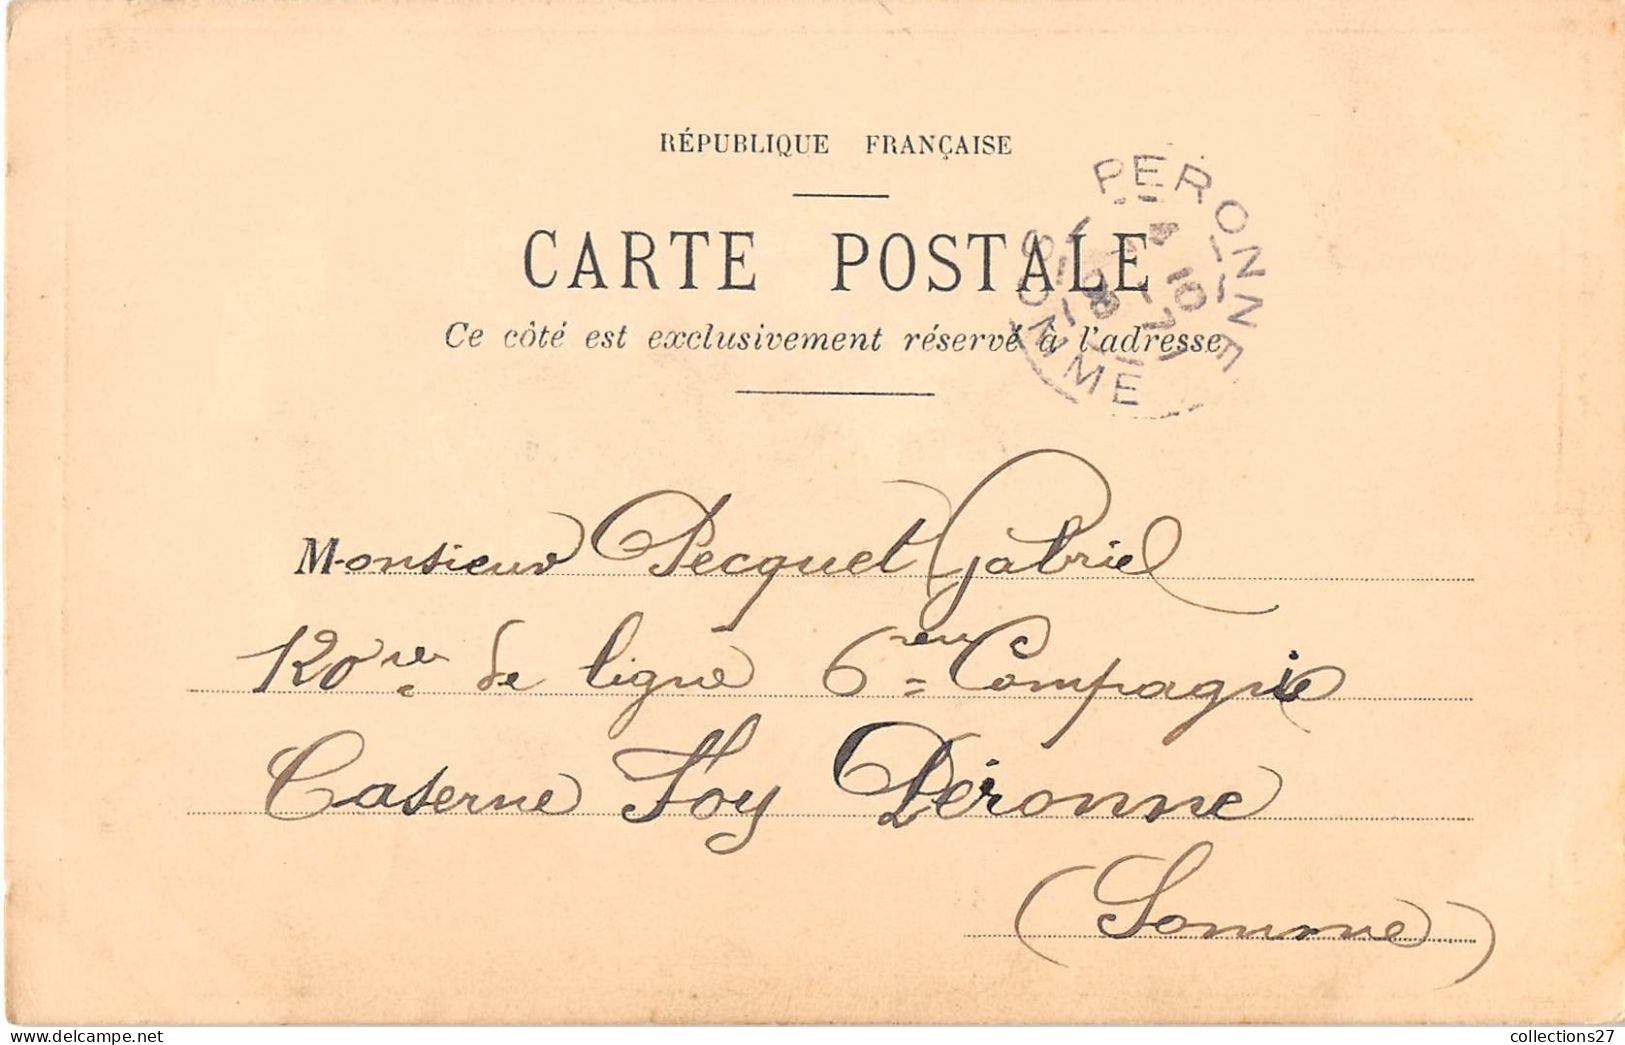 RÉPUBLIQUE FRANÇAISE
CARTE POSTALE
Ce côté est exclusivement réservé à l'adresse
PERONNE
SOMME
Monsieur Pecquet Gabriel
120 de ligne 6 Compagnie
Caserne Foy Péronne
(Somme)
collections27